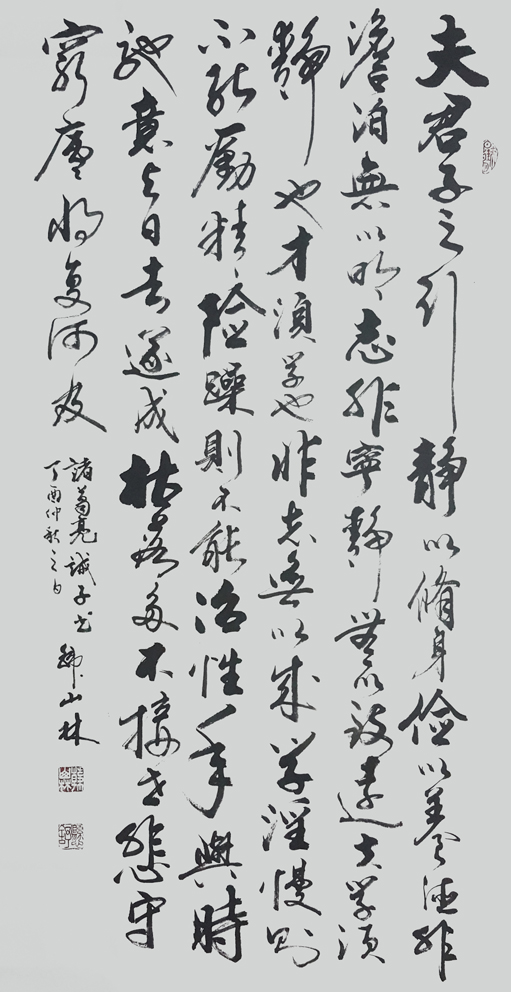 夫君子之行静以脩身俭以养德非
澹泊無以明志非寧静無以致遠夫学须
静也才须学也非志無以成学淫慢则
不能勵精险躁則不能冶性年與時
驰意与日去遂成枯落多不接世悲守
窮廬将复何及
諸葛亮誡子书 山林
丁酉仲秋之月